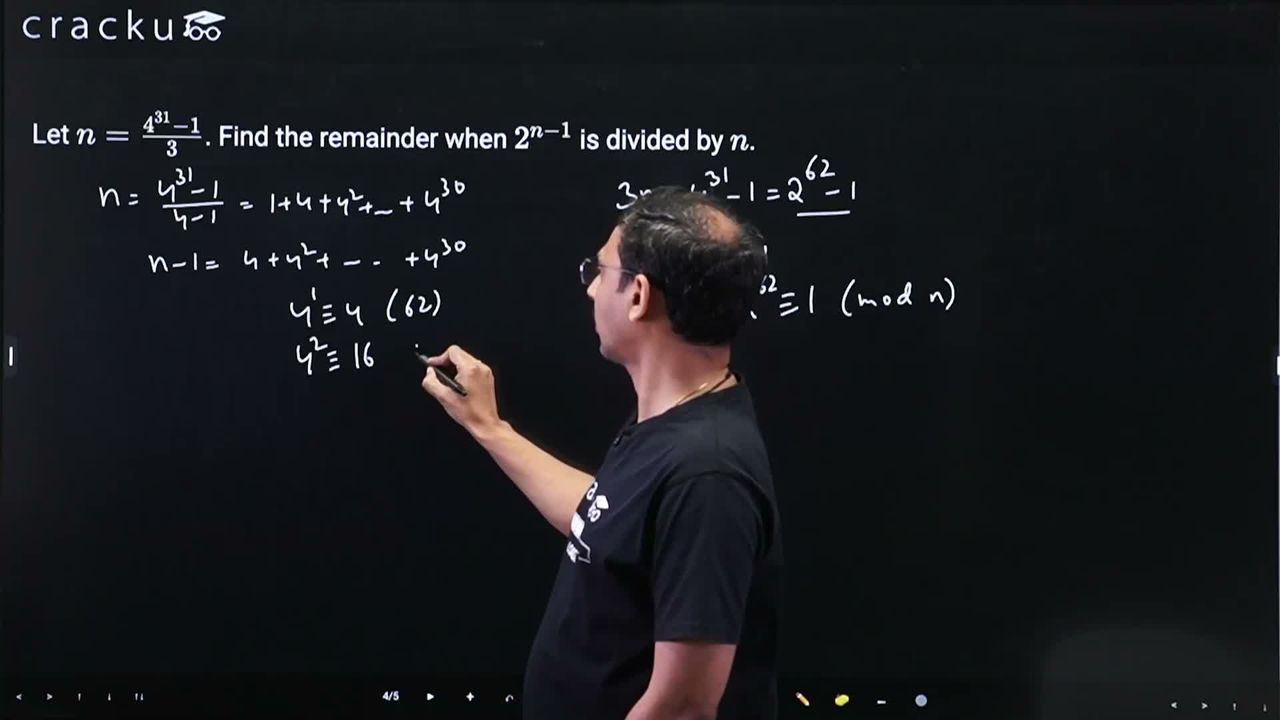 cracku
Let n = \frac{4^{31}-1}{3}. Find the remainder when 2^{n-1} is divided by n.
n = \frac{4^{31}-1}{4-1} = 1+4+4^2+ - + 4^{30}
-1 = 2^{62}-1
n-1 = 4+4^2+ - - - +4^{30}
4^1 ≡ 4 (62)
≡ 1 (mod n)
4^2 ≡ 16
4/5